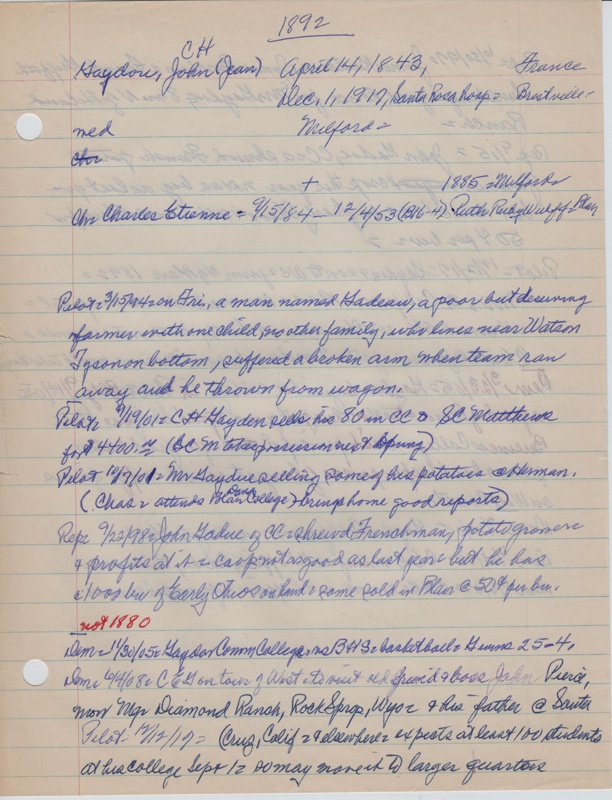 1892
CH
Gaydou, John (Jean) April 14, 1843, France
Dec. 1, 1917, Santa Rosa Hosp = Brestville =
med Milford =
chr
+ 1885 = Milford =
Chr Charles Etienne = 9/15/84 - 12/4/53 (B16-4) Ruth = Blair
Pilot = 3/15/94 = on Fri., a man named Gadeau, a poor but deserving
farmer with one child, no other family, who lives near Watson
Tyson on bottom, suffered a broken arm when team ran
away and he thrown from wagon.
Pilot = 9/19/01 = C H Gayden sells his 80 in CC to SC Matthews
for $4400.00 (SCM takes possession next Spring)
Pilot 10/9/01 = Mr Gaydue selling some of his potatoes @ Herman.
(Chas = attends Blair College) + brings home good reports)
Rep = 9/22/98 = John Gadue of CC = shrewd Frenchman, potato grower
& profits at it = crop not as good as last year but he has
1000 bu of Early Ohios on hand = some sold in Blair @ 50¢ per bu.
not 1880
Dem = 11/30/05 = Gaydon Comm College vs BHS = basketball = G wins 25-4,
Dem = 6/4/08 = C E G on tour of West to visit old friend & boss John Pierce,
now Mgr Diamond Ranch, Rock Sprgs, Wyo = & his father @ Santa
Pilot 12/12/17 = (Cruz, Calif = & elsewhere = expects at least 100 students
at his college Sept 1 = so may move it to larger quarters